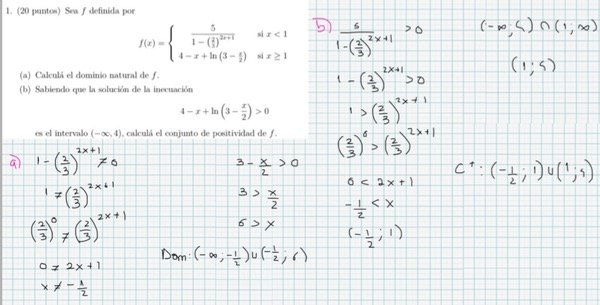 1. (20 puntos) Sea f definida por
f(x) = { 5 / (1 − (2/3)^(2x+1)) si x < 1
4 − x + ln(3 − x/2) si x ≥ 1
(a) Calculá el dominio natural de f.
(b) Sabiendo que la solución de la inecuación
4 − x + ln(3 − x/2) > 0
es el intervalo (−∞, 4), calculá el conjunto de positividad de f.
a)
1 − (2/3)^(2x+1) ≠ 0
1 ≠ (2/3)^(2x+1)
(2/3)^0 ≠ (2/3)^(2x+1)
0 ≠ 2x+1
x ≠ −1/2
3 − x/2 > 0
3 > x/2
6 > x
Dom: (−∞, −1/2) ∪ (−1/2; 6)
b)
5 / (1 − (2/3)^(2x+1)) > 0
1 − (2/3)^(2x+1) > 0
1 > (2/3)^(2x+1)
(2/3)^0 > (2/3)^(2x+1)
0 < 2x+1
−1/2 < x
(−1/2; 1)
(−∞, 4) ∩ (1; ∞)
(1; 4)
C⁺: (−1/2; 1) ∪ (1; 4)